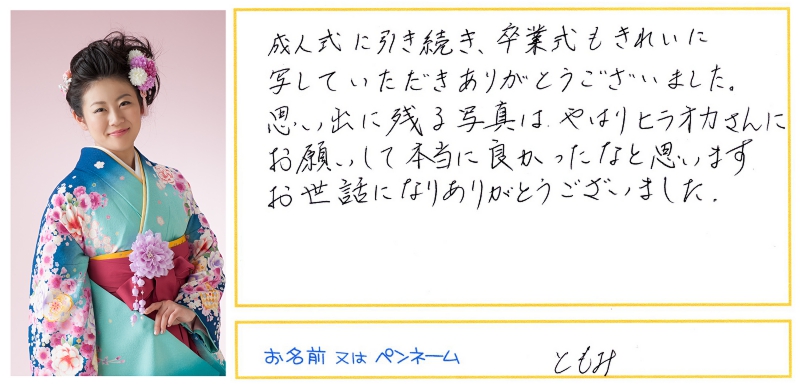 成人式に引き続き、卒業式もきれいに
写していただきありがとうございました。
思い出に残る写真は、やはりヒラオカさんに
お願いして本当に良かったなと思います
お世話になりありがとうございました。
お名前 又は ペンネーム
ともみ